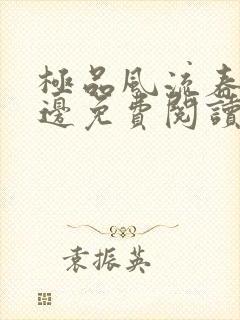 極品風流春
邊免費閱讀
袁振英